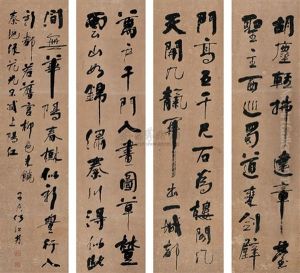 胡塵輕拂建章
聖主西巡蜀道來劍壁
門高五千尺石為樓閣九
天開 出一城都
萬戶千門入畫圖草樹
雲山如錦繡秦川得似此
間無華陽春樹似新豐行入
新都若舊宮柳色未饒
秦地綠花光不減上陽紅